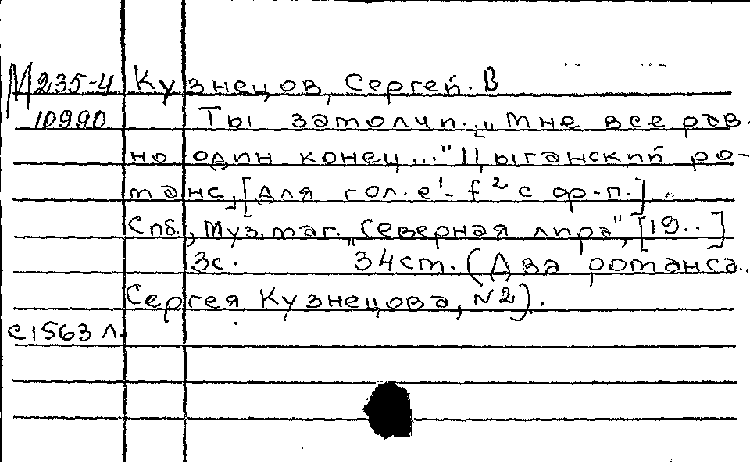 М 235-4 Кузнецов, Сергей. В
10990 Ты замолчи.. „Мне все рав-
но один конец..." Цыганский ро-
манс, [для гол. e¹- f² с ф-п.]
Спб., Муз. маг. „Северная лира", [19..]
3с. 34см. (Два романса
Сергея Кузнецова, №2).
с1563 л.